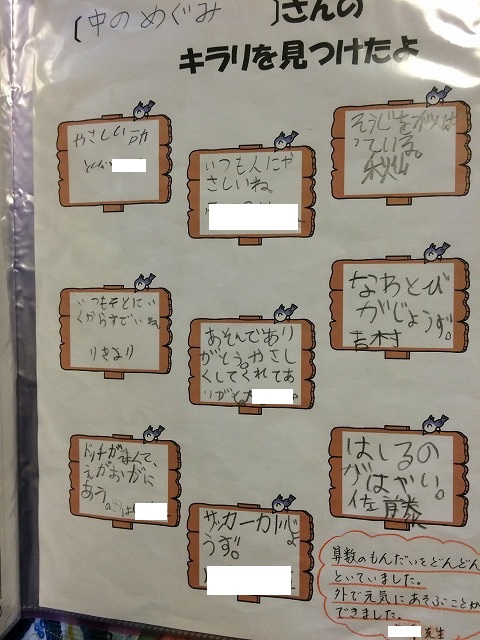 〔中のめぐみ　　〕さんの
キラリを見つけたよ
やさしい所
そうじをがんば
っている。
秋山
いつも人にや
さしいね。
いつもそとにい
くからすごいね
りきなり
あそんであり
がとう。やさし
くしてくれてあ
りがとう
なわとび
がじょうず。
吉村
えがおがに
あう。
サッカーがじょ
うず。
はしるの
がはやい。
佐藤
算数のもんだいをどんどん
といていました。
外で元気にあそぶことが
できました。
先生